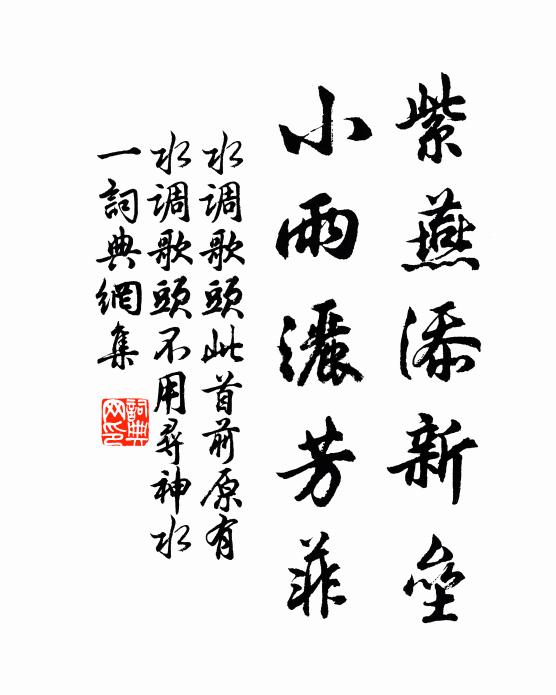 紫燕添新壘
小雨灑芳菲
水调歌頭此首前原有
水调歌頭不用尋神水
一詞典網集
詞典网印